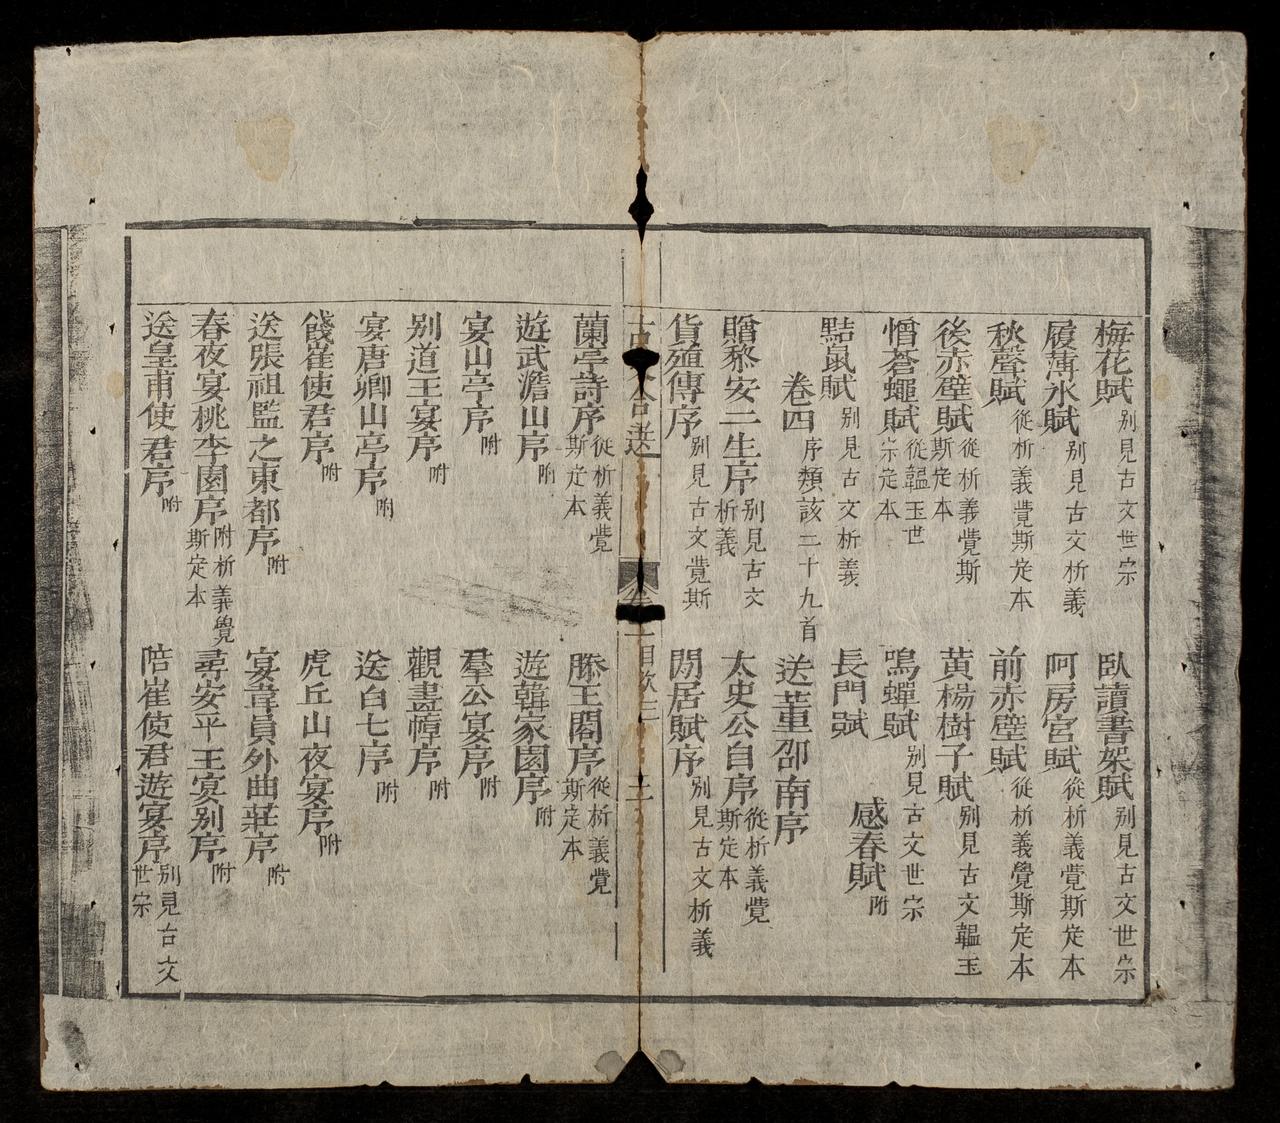 梅花賦 别見古文世宗 臥讀書架賦 别見古文世宗
履薄冰賦 别見古文析義 阿房宮賦 從析義覺斯定本
秋聲賦 從析義覺斯定本 前赤壁賦 從析義覺斯定本
後赤壁賦 從析義覺斯定本 黃楊樹子賦 别見古文韞玉
憎蒼蠅賦 從韞玉世宗定本 鳴蟬賦 别見古文世宗
黠鼠賦 别見古文析義 長門賦 感春賦 附
卷四 序類該二十九首 送董邵南序
贈黎安二生序 别見古文析義 太史公自序 從析義覺斯定本
貨殖傳序 别見古文覺斯 閒居賦序 别見古文析義
古文合選 卷 目次三
蘭亭詩序 從析義覺斯定本 滕王閣序 從析義覺斯定本
遊武澹山序 附 遊韓家園序 附
宴山亭序 附 羣公宴序 附
别道王宴序 附 觀畫幛序 附
宴唐卿山亭序 附 送白七序 附
餞崔使君序 附 虎丘山夜宴序 附
送張祖監之東都序 附 宴韋員外曲莊序 附
春夜宴桃李園序 附析義覺斯定本 尋安平王宴别序 附
送皇甫使君序 附 陪崔使君遊宴序 别見古文世宗